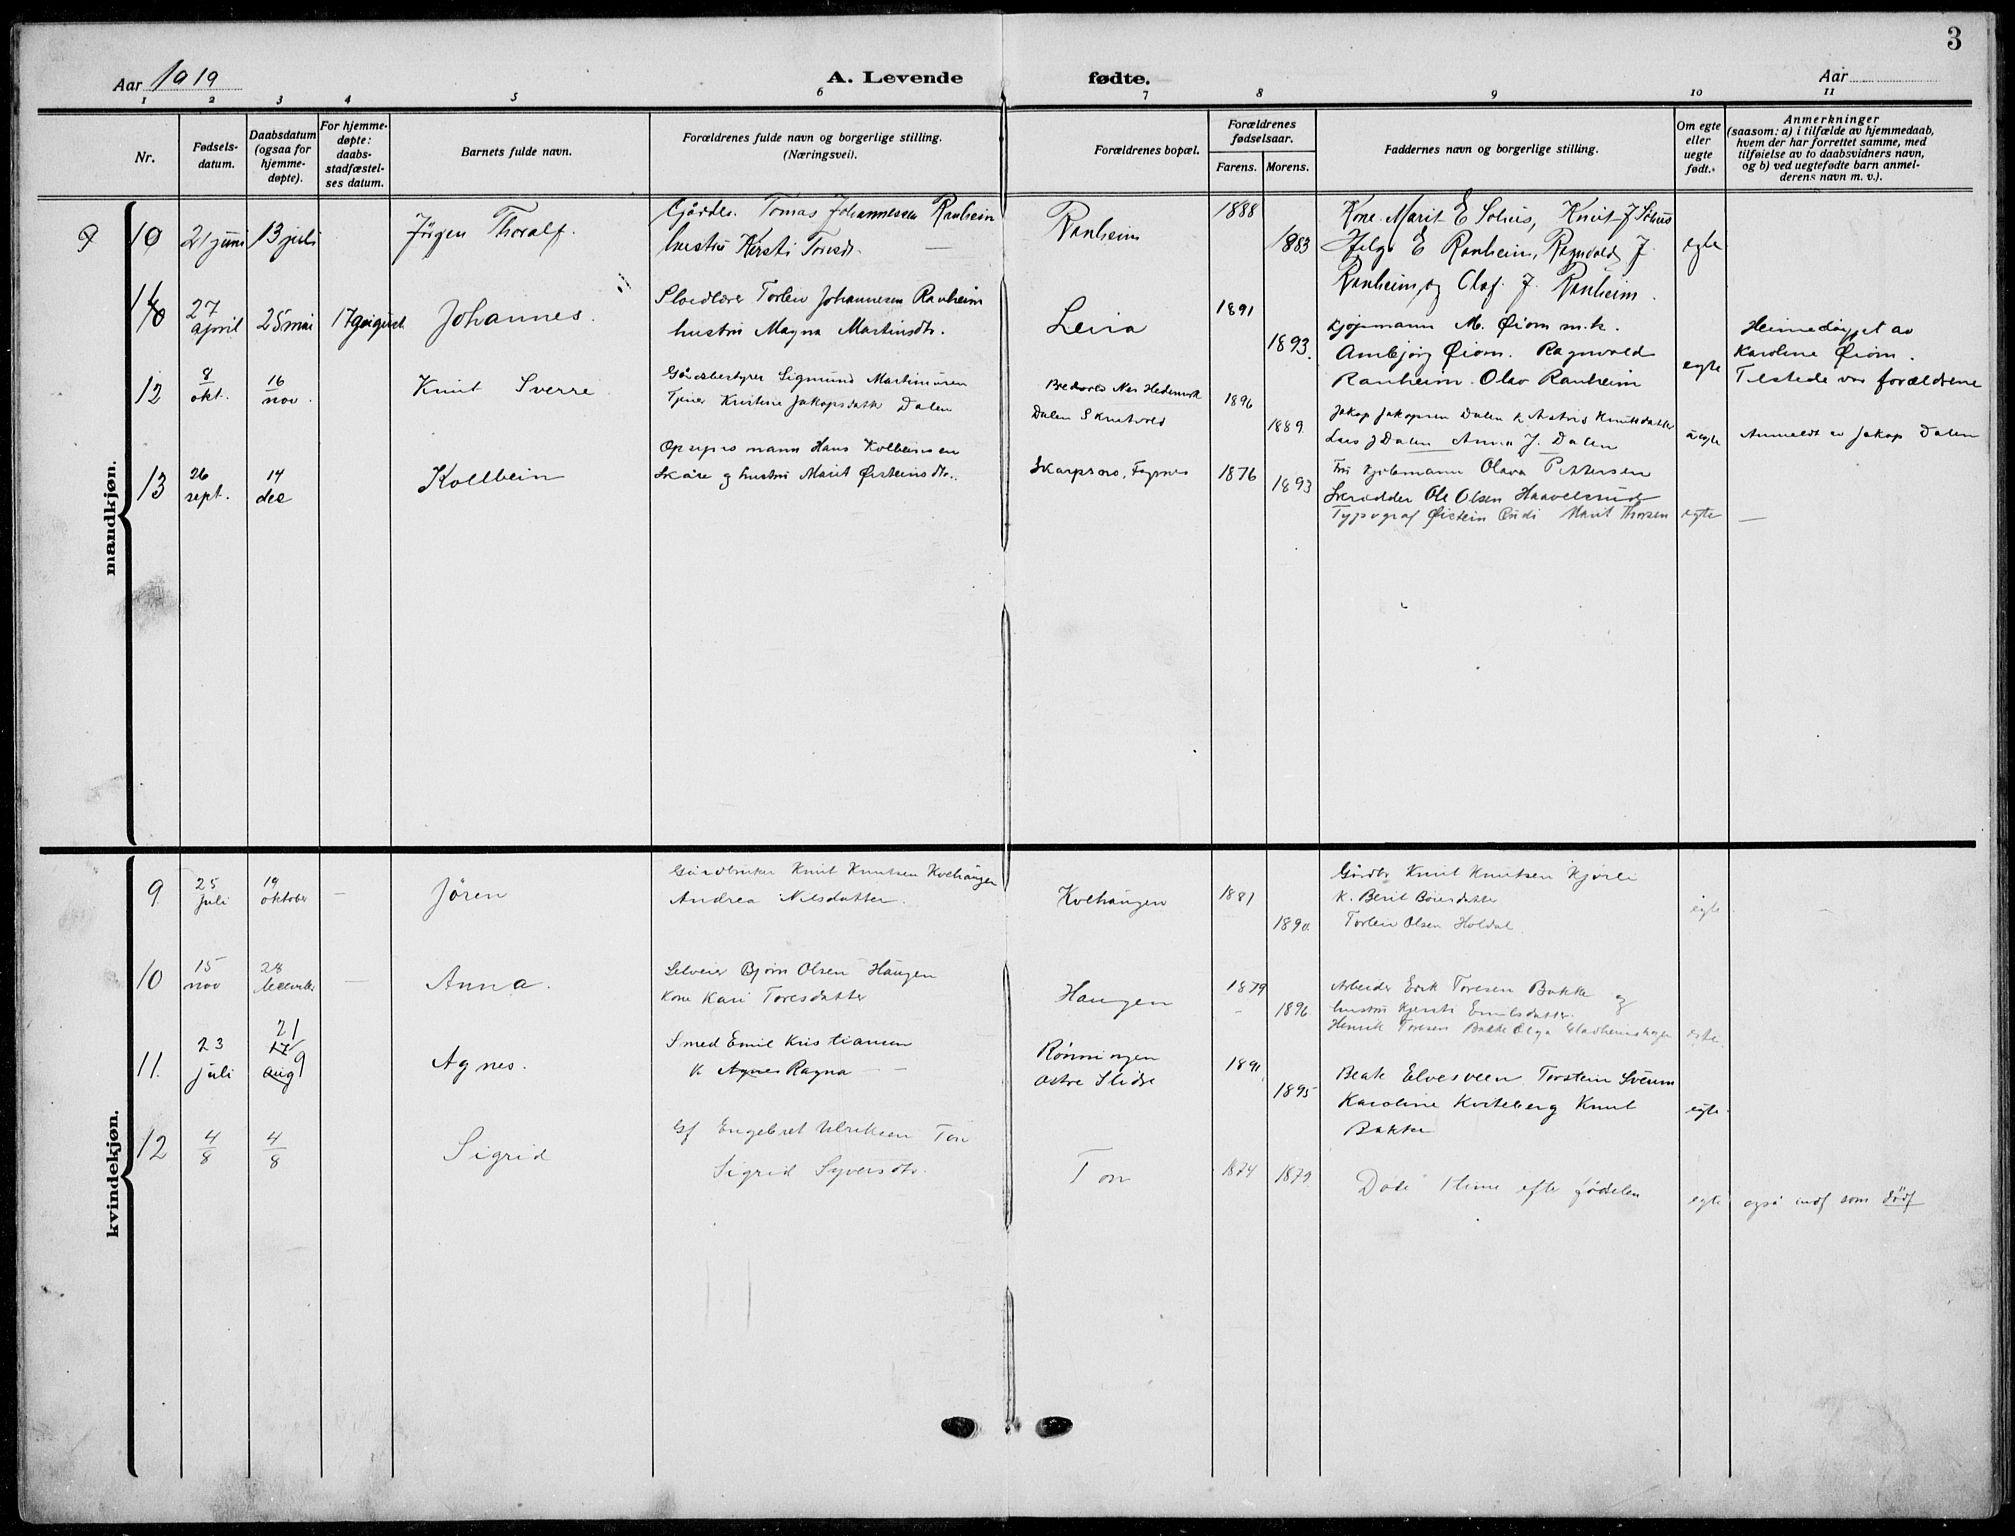 3
Aar 1919
A. Levende fødte.
Aar
1 2 3 4 5 6 7 8 9 10 11
Nr.
Fødsels-
datum.
Daabsdatum
(ogsaa for
hjemme-
døpte).
For hjemme-
døpte:
daabs-
stadfæstel-
ses datum.
Barnets fulde navn.
Forældrenes fulde navn og borgerlige stilling.
(Næringsvei).
Forældrenes bopæl.
Forældrenes
fødselsaar.
Farens. Morens.
Faddernes navn og borgerlige stilling.
Om egte
eller
uegte
født.
Anmerkninger
(saasom: a) i tilfælde av hjemmedaab,
hvem der har forrettet samme, med
tilføielse av to daabsvidners navn,
og b) ved uegtefødte barn anmel-
derens navn m. v.).
mandkjøn.
10 21 juni 13 juli Jörgen Thoralf.
Gårdbr. Tomas Johannessen Ranheim
hustru Kersti Toresdt.
Ranheim 1888 1883
Kone Marit E Solius, Knut J Solius
Helge E Ranheim, Ragnvald J.
Ranheim, og Olaf J. Ranheim.
egte
27
april 25 mai 17 august Johannes.
Sløidlærer Torleiv Johannesen Ranheim
hustru Magna Martinsdtr.
Leira 1891 1893.
Kjøpmann M. Øiom m.k.
Ambjörg Øiom. Ragnvald
Ranheim. Olav Ranheim
egte
Heimedøypt av
Karoline Øiom.
Tilstede var forældrene
12 8
okt. 16
nov. Knut Sverre
Gårdsbestyrer Sigmund Martinusen
Tjener Kristine Jakopsdatter Dalen
Nes Hedemark
Dalen Skrutvold
1896 1889.
Jakop Jakopsen Dalen k. Astrid Knutsdatter
Lars J Dalen Anna J. Dalen
uegte
Anmeldt av Jakop Dalen
13 26
sept. 14
dec Kollbein
Opsynsmann Hans Kolbeinsen
Skåre og hustru Marit Øisteinsdtr.
Fagernes 1876 1893
Fru Olava Pettersen
Skrædder Ole Olsen Haavelsrud
Typograf Øistein Marit Thorsen
egte —
kvindekjøn.
9 25
juli 19
oktober — Jören
Gårdbruker Knut Knutsen Kvehaugen
Andrea Nilsdatter.
Kvehaugen 1881 1890.
Gårdbr Knut Knutsen Kjörli
K. Berit Boiesdatter
Torleiv Olsen Holdal.
egte —
10 15
nov 28
december — Anna.
Selveier Bjørn Olsen Haugen
Kone Kari Toresdatter
Haugen 1879 1896
Arbeider Erik Toresen Bakke og
hustru Kjersti Emilsdatter.
Henrik Toresen Bakke Olga
egte.
11. 23
juli 21
17
aug 9 Agnes.
Smed Emil Kristiansen
k Agnes Ragna
Rønningen
Østre Slidre
1891 1895
Beate Elvesveen Torstein Sveum
Karoline Kviteberg Knut
Bakke
egte.
12 4
8 4
8 Sigrid
Gf Engebret Ulriksen Ton
Sigrid Syversdtr.
Ton 1874 1879.
Døde 1 time efter fødselen
egte
også indf som dödf